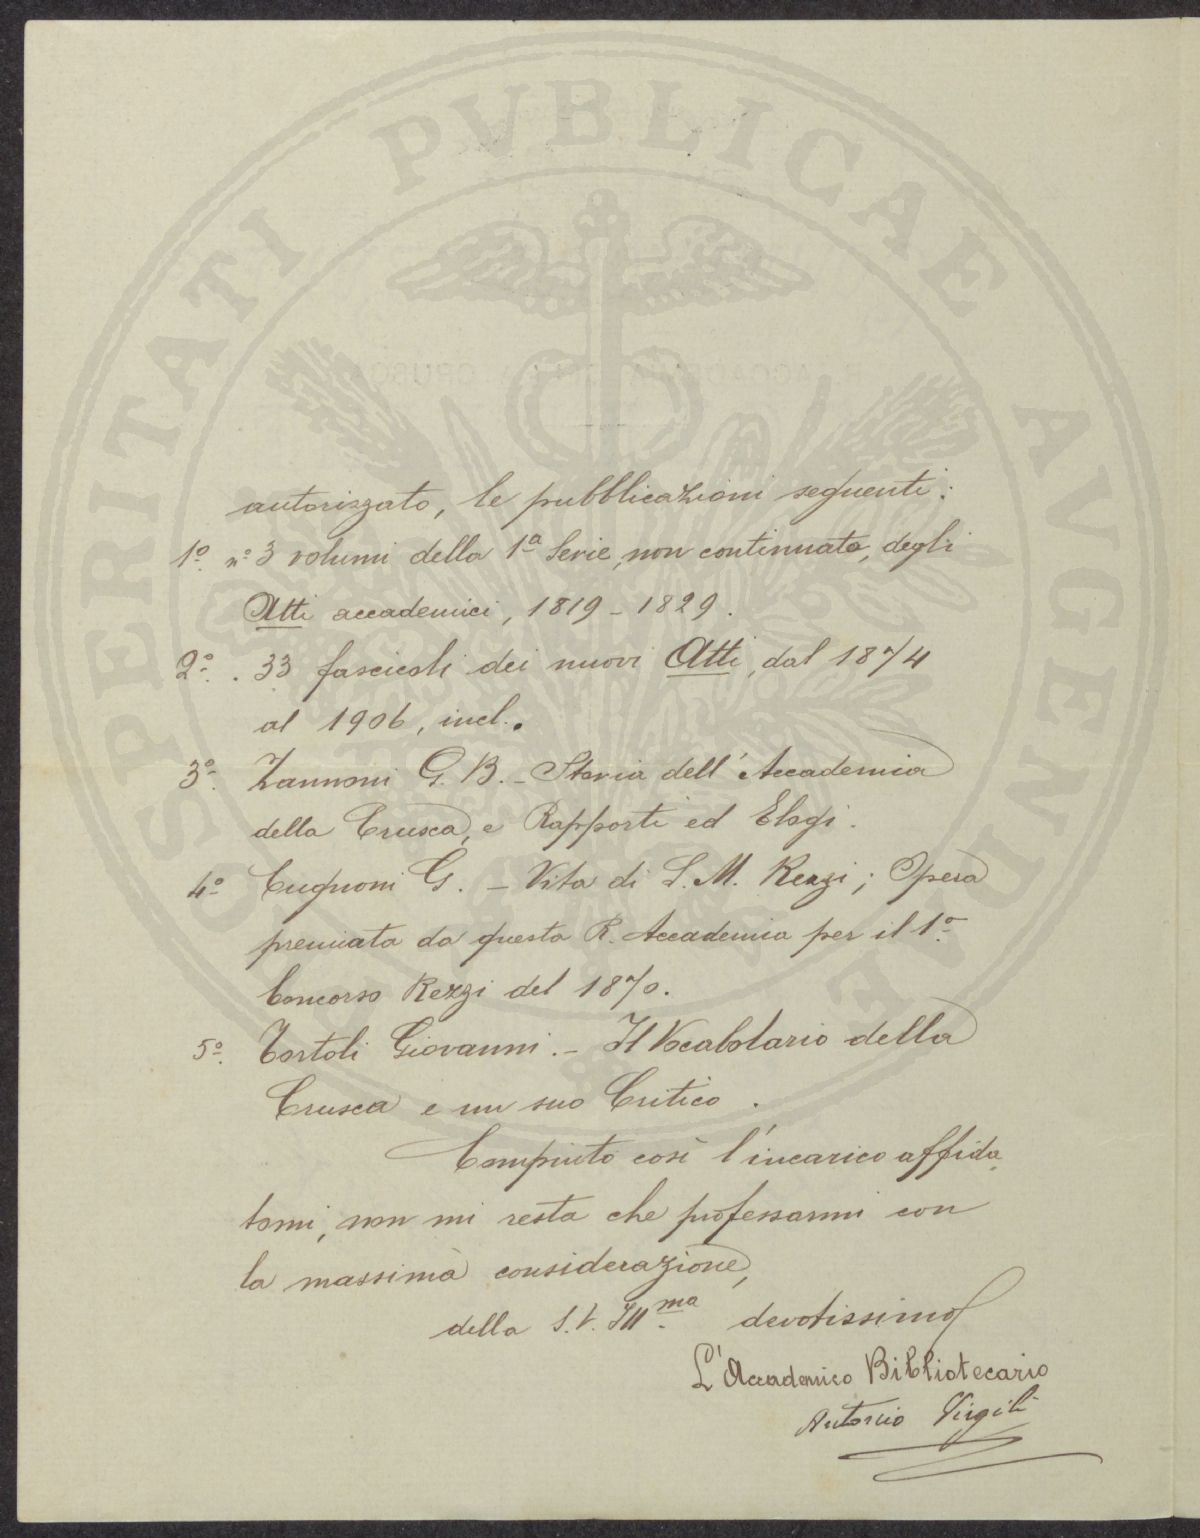 PROSPERITATI PVBLICAE AVGENDAE
autorizzato, le pubblicazioni seguenti:
1º. nº 3 volumi della 1ª Serie, non continuata, degli
Atti accademici, 1819-1829.
2º. . 33 fascicoli dei nuovi Atti, dal 1874
al 1906, incl..
3º. Zannoni G. B. - Storia dell'Accademia
della Crusca, e Rapporti ed Elogi.
4º Cugnoni G. - Vita di L. M. Rezzi; Opera
premiata da questa R. Accademia per il 1º
Concorso Rezzi del 1870.
5º. Tortoli Giovanni. - Il Vocabolario della
Crusca e un suo Critico.
Compiuto così l'incarico affida
tomi, non mi resta che professarmi con
la massima considerazione,
della S. V. Illma devotissimo
L'Accademico Bibliotecario
Antonio Virgili